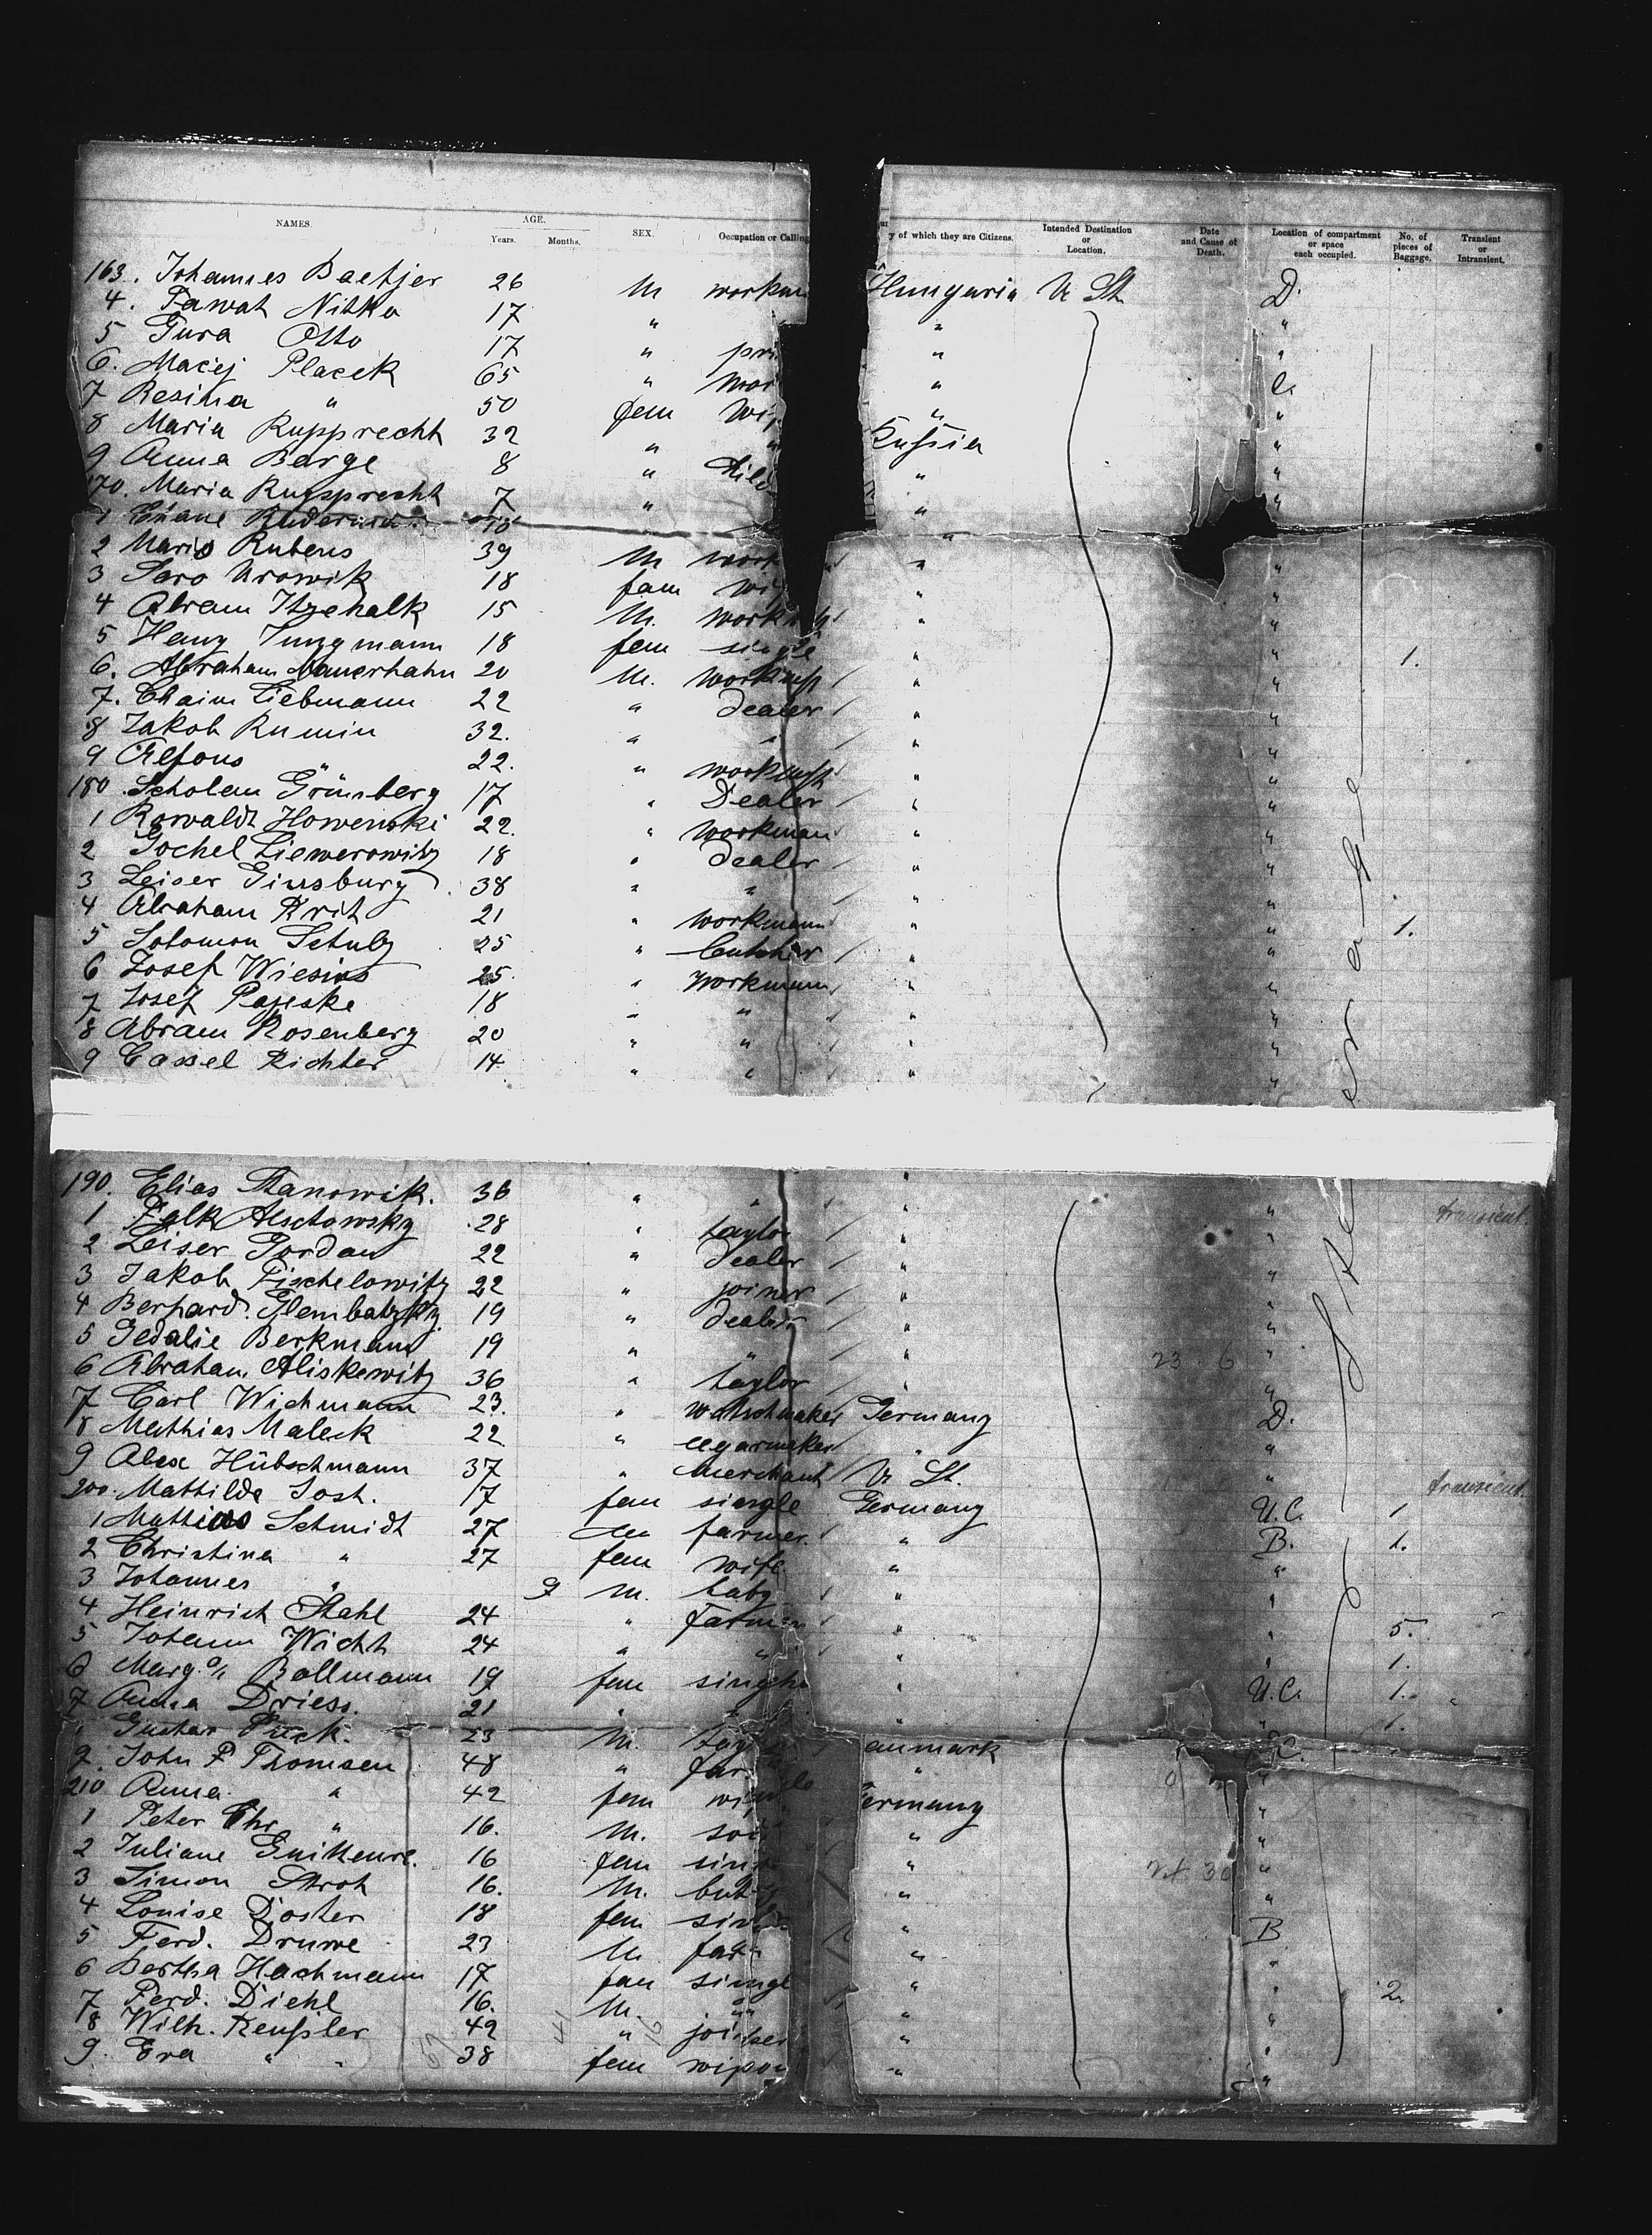 NAMES. AGE. Years. Months. SEX. Occupation or Calling y of which they are Citizens. Intended Destination or Location. Date and Cause of Death. Location of compartment or space each occupied. No. of pieces of Baggage. Transient or Intransient.
163. Johannes Baetjer 26 M workm Hungaria U St. D.
4. Nitka 17 " " "
5 Gura Otto 17 " " "
6. Maciej Placek 65 " wor " C.
7 Resina " 50 fem wi " "
8 Maria Rupprecht 32 " " Russia "
9 Anna Barge 8 " child " "
170. Maria Rupprecht 7 " " "
1 10 "
2 Rubens 39 M work " "
3 Saro Urowik 18 fem wi " "
4 Abram Itzehalk 15 M. workm " "
5 Hany Jungmann 18 fem single " " 1.
6. Abraham Mauerhahn 20 M. workmn " "
7. Chaim Liebmann 22 " Dealer " "
8 Jakob Rumin 32. " " " "
9 Alfons " 22. " workmn " "
180. Scholem Grünberg 17 " Dealer " "
1 Rowaldt Howenski 22. " workman " "
2 Jochel Liewerowitz 18 " dealer " "
3 Leiser Ginsburg 38 " " " "
4 Abraham Krit 21 " workmann " " 1.
5 Solomon Schulz 25 " butcher " "
6 Josef Wiesins 25 " workmann " "
7 Josef Pageske 18 " " " "
8 Abram Rosenberg 20 " " " "
9 Cassel Richter 14 " " " "
Steerage
190. Elias Stanowik. 36 " " " " transient.
1 Falk Alschowsky 28 " taylor " "
2 Leiser Gordan 22 " dealer " "
3 Jakob Fischelowitz 22 " joiner " "
4 Berhard. Glembatzky 19 " dealer " "
5 Gedalie Berkmann 19 " " " 23.6 "
6 Abraham Aliskewitz 36 " taylor " "
7 Carl Wichmann 23. " watschmaker Germany D.
8 Mathias Maleck 22 " cigarmaker " "
9 Alex Hübschmann 37 " merchant U St. " transient.
200. Mathilde Jost. 17 fem single Germany U.C. 1
1 Mathias Schmidt 27 M farmer. " B. 1.
2 Christina " 27 fem wife " "
3 Johannes " 9 M. baby " "
4 Heinrich Stahl 24 " Farmer " " 5.
5 Johann Wicht 24 " " " " 1.
6 Marg. Bollmann 19 fem single " U.C. 1. "
7 Anna Driess. 21 " " " " 1.
Gustav 23 M. tay anmark C.
9. John P Thomsen 48 " far " "
210 Anna " 42 fem wi ermany "
1 Peter Chr " 16. M. so " "
2 Juliane 16 fem sin " 24 30 "
3 Simon Stroh 16. M. but " "
4 Louise Doster 18 fem sin " B
5 Ferd. Druwe 23 M far " "
6 Bertha Hachmann 17 fem singl " "
7 Ferd. Diehl 16. M. " " " 2.
8 Wilh. Reußler 49 " joiner " "
9. Eva " 38 fem " "